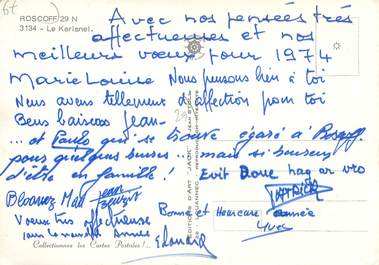 ROSCOFF 29 N
3134 - Le Kerisnel.
Avec nos pensées très
affectueuses et nos
meilleurs voeux pour 1974
Marie Louise Nous pensons bien à toi
Nous avons tellement d'affection pour toi
Bons baisers Jean-
... et qui se trouve égaré à Roscoff
pour quelques heures ... mais si heureux
d'être en famille ! Evit Doue hag ar vro
PATRICK
Bloavez Mad
Voeux très affectueuse
pour la nouvelle Année
Edouard
Bonne et Heureuse année
Yves
EDITIONS D'ART "JACK"
Collectionnez les Cartes Postales !...